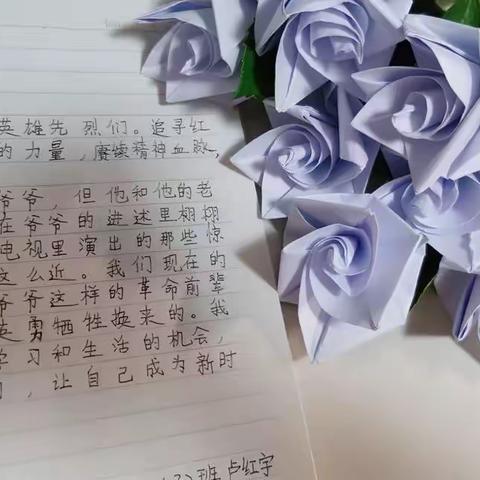 英雄先烈们。追寻红
的力量，赓续精神血脉，
爷爷，但他和他的老
在爷爷的讲述里栩栩
电视里演出的那些惊
这么近。我们现在的
爷爷这样的革命前辈
英勇牺牲换来的。我
学习和生活的机会，
，让自己成为新时
班 卢红宇